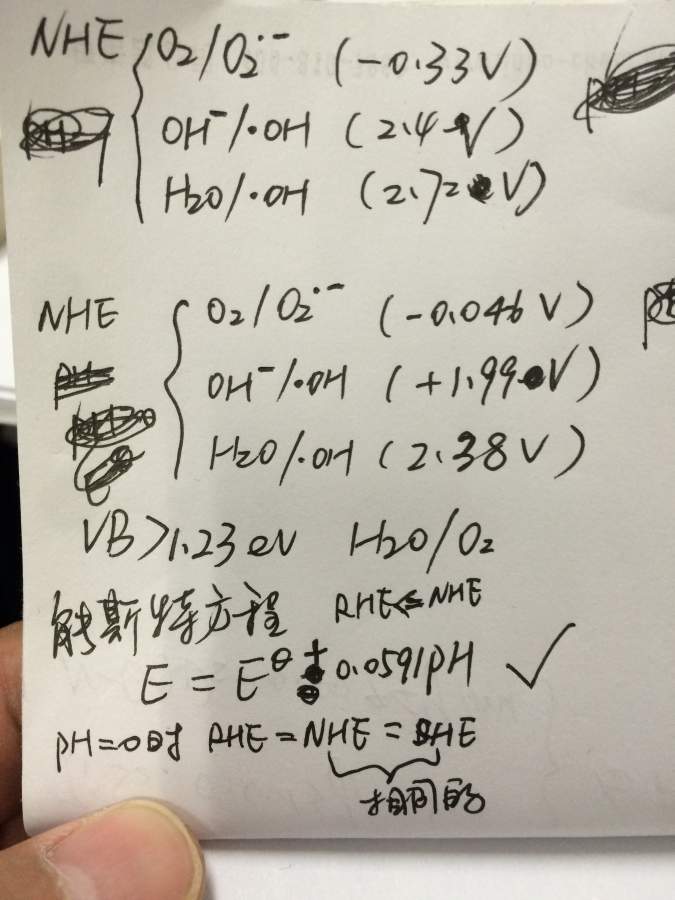 NHE { O₂/O₂·⁻ (-0.33V)
OH⁻/·OH (2.4V)
H₂O/·OH (2.72V)
NHE { O₂/O₂·⁻ (-0.046V)
OH⁻/·OH (+1.99V)
H₂O/·OH (2.38V)
VB>1.23eV H₂O/O₂
能斯特方程 RHE⇐NHE
E = E^θ + 0.0591pH ✓
pH=0时 RHE=NHE=SHE
相同的